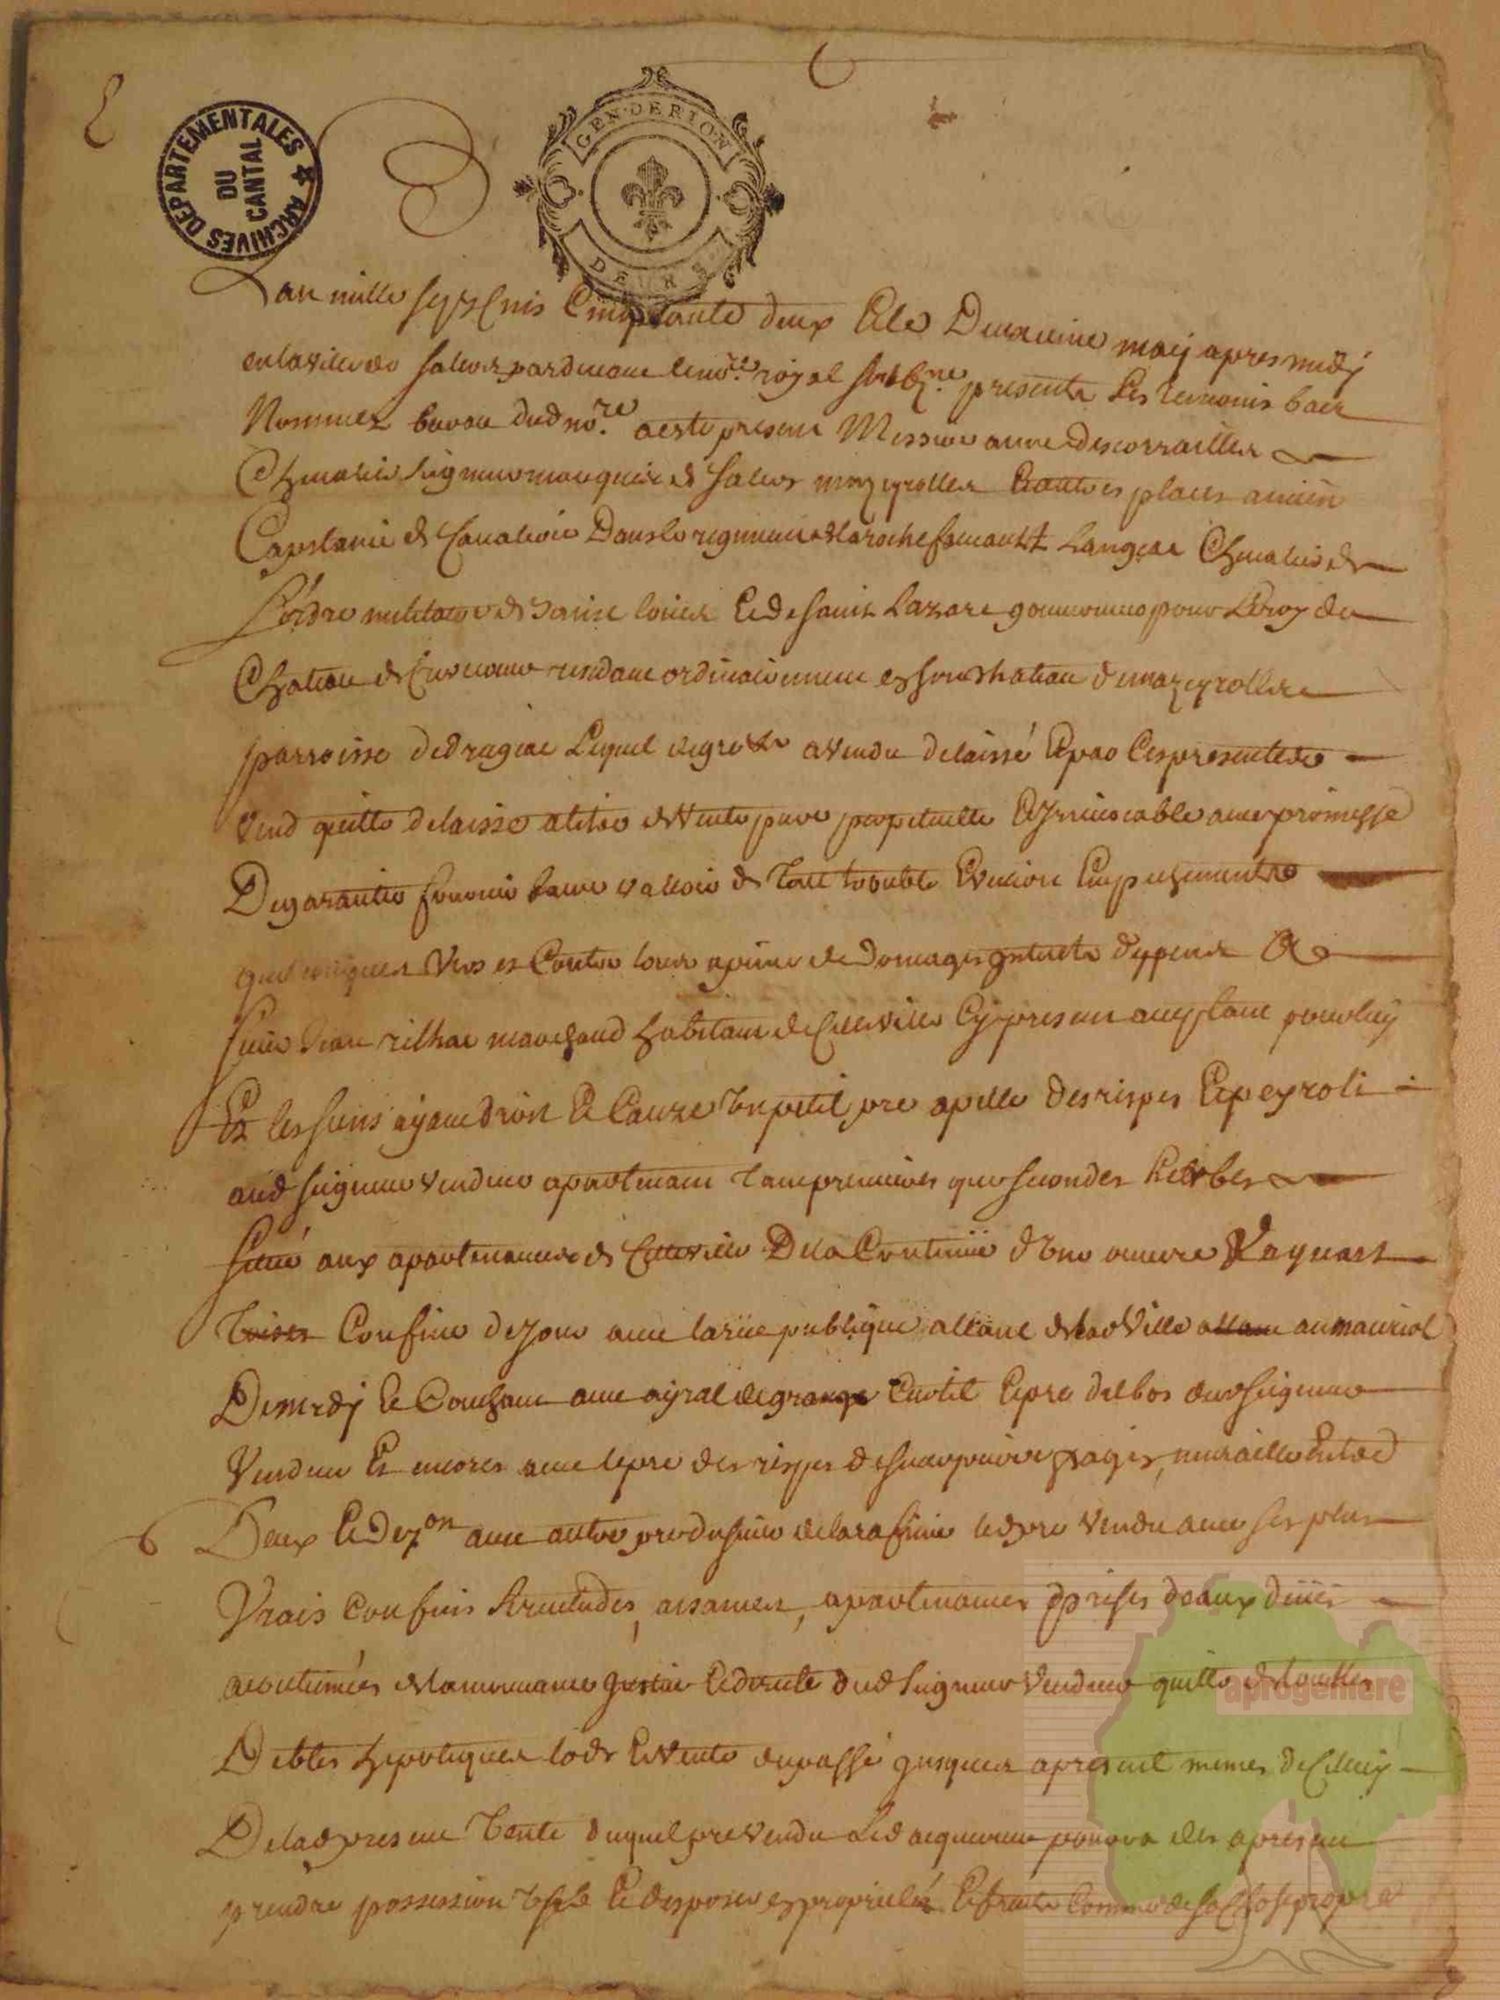 ARCHIVES DEPARTEMENTALES
DU
CANTAL
GEN·DERION
DEUX S
Lan mille sept Cens Cinquante deux Et le Dixieme may apres midy
en la ville de Salers pardevant le no.re royal presents Les temoins bas
Nommez dud no.re a este present Messire descorrailles
Chevalier Seigneur marquis de Salers mazeyrolles Et autres places ancien
Capitaine de Cavalerie Dans le regiment de larochefoucault Langeac Chevalier de
Lordre militaire de Saint louis Et de Saint Lazare gouverneur pour Le roy du
Chateau de residant ordinairement en son chateau de mazeyrolles
parroisse de Drugeac Lequel de gré a vendu delaissé Et par Ces presentes
vend quitte delaisse a titre de Vente pure perpetuelle Et irrevocable avec promesse
De garantie fournir faire valloir de tout trouble Eviction Empechements
quelconques Vers et Contre tous a peine de Domages interets depens A
Sieur Jean rilhac marchand habitant de Cette ville Cy present acceptant pour luy
Et les siens ayant droit Et Cause Un petit pre apelle des rispes Et peyroli
aud seigneur vendeur apartenant tant premieres que secondes herbes
Situé aux apartenances de Cette ville De la Contenüe d'une œuvre Et quart
Confine de jour avec la rüe publique allant de lad Ville au mauriol
De midy Et Couchant avec ayral de grange Curtil Et pre del bos dud seigneur
Vendeur Et encores avec le pre des rispes muraille Entre
Deux Et de z.on avec autre pre du sieur de led pre vendu avec ses plus
Vrais Confins Servitudes, aisances, apartenances prises deaux deües
acoutumées de la mouvance Et directe dud Seigneur Vendeur quitte de touttes
Debtes hipoteques lods Et Vente du passé jusques a present memes de Ceux
De la presente Vente duquel pre vendu Led acquereur pourra des a present
prendre possession Et disposer en proprieté Et fruits Comme de sa Chose propre
aprogemere